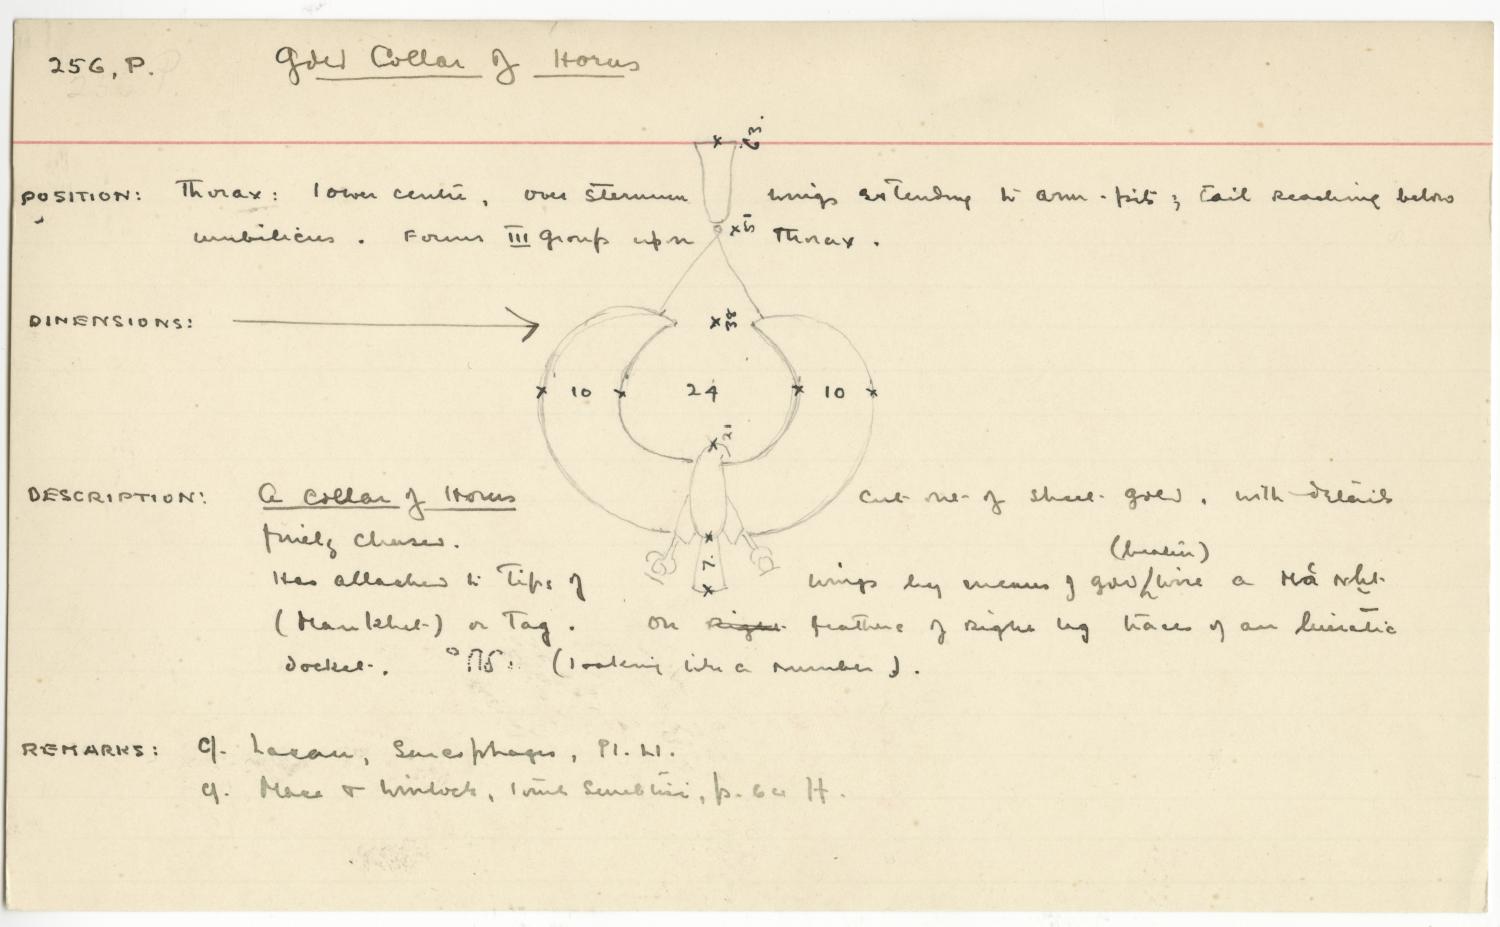 256, P. Gold Collar of Horus
63.
POSITION: Thorax: lower centre, over sternum wings extending to arm-pits; tail reaching below
umbilicus. Forms III group upon Thorax.
DIMENSIONS:
38
10 24 10
21
DESCRIPTION: A collar of Horus cut out of sheet gold, with details
finely chased.
7.
(beaten)
Has attached to tips of wings by means of gold wire a
(Mankhet) or Tag. On right feathers of right leg traces of an hieratic
docket. (looking like a number).
REMARKS: Cf. Lacau, Sarcophages, Pl. LI.
Cf. Mace & Winlock, Tomb Senebtisi, p. 64